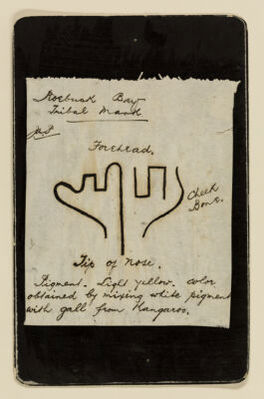 Roebuck Bay
Tribal Mark
Forehead.
Cheek
Bone.
Tip of Nose.
Pigment. Light yellow. color
obtained by mixing white pigment
with gall from Kangaroo.